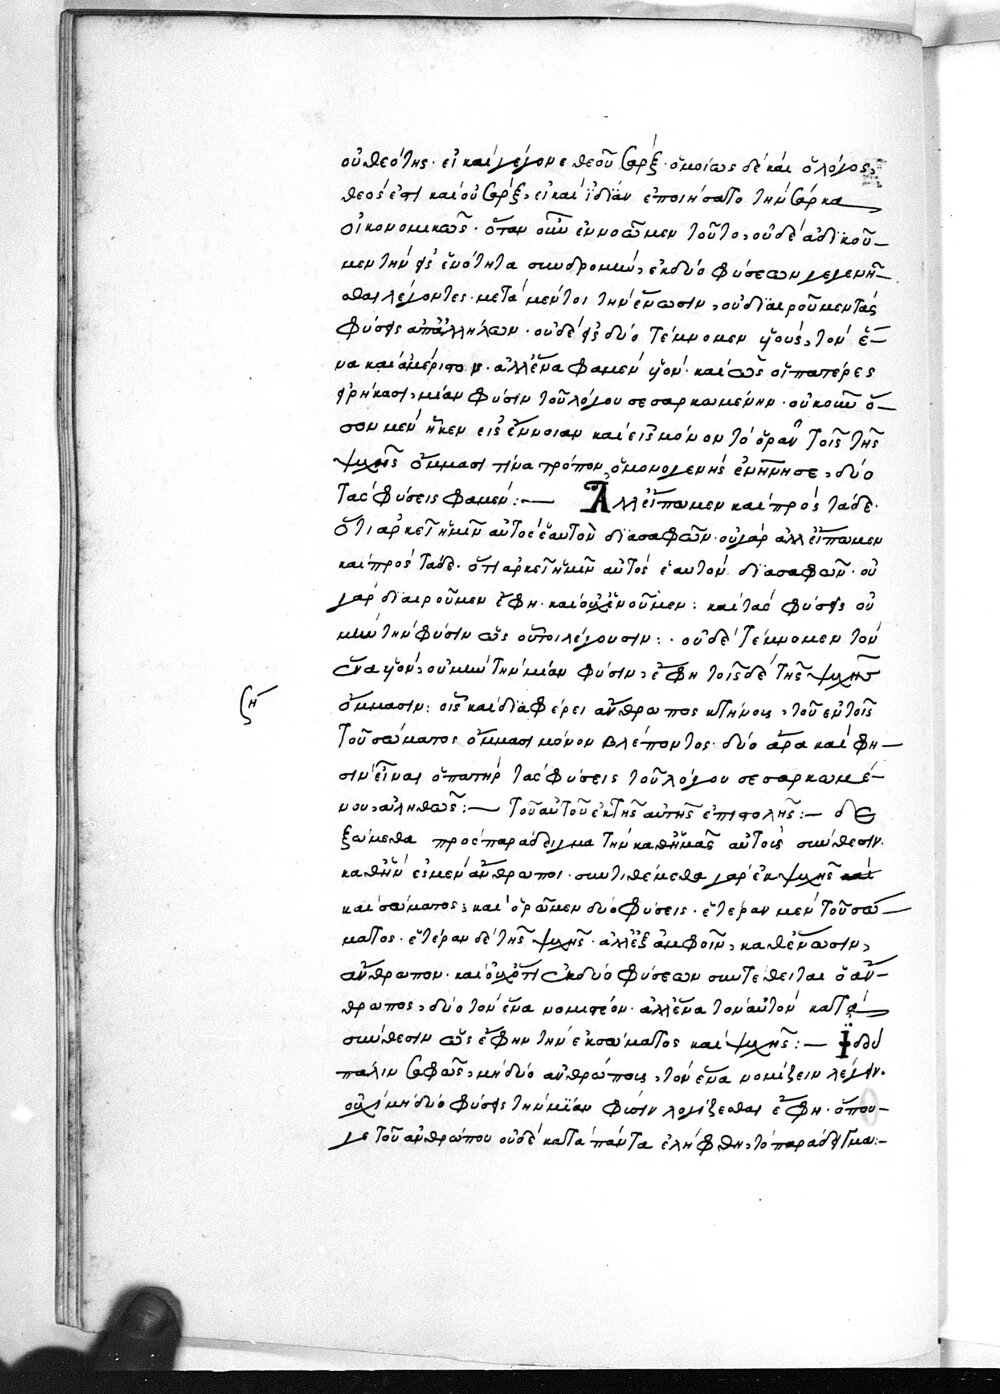 οὐ θεότης· εἰ καὶ γέγονε θεοῦ σὰρξ· ὁμοίως δὲ καὶ ὁ λόγος,
θεός ἐστι καὶ οὐ σὰρξ, εἰ καὶ ἰδίαν ἐποιήσατο τὴν σάρκα
οἰκονομικῶς· ὅταν οὖν ἐννοῶμεν τοῦτο, οὐδὲ ἀδικοῦ-
μεν τὴν εἰς ἑνότητα συνδρομὴν, ἐκ δύο φύσεων γεγενῆ-
σθαι λέγοντες· μετὰ μέντοι τὴν ἕνωσιν, οὐ διαιροῦμεν τὰς
φύσεις ἀπἀλλήλων· οὐδὲ εἰς δύο τέμνομεν υἱοὺς, τὸν ἕ-
να καὶ ἀμέριστον· ἀλλἕνα φαμὲν υἱόν· καὶ ὡς οἱ πατέρες
εἰρήκασι, μίαν φύσιν τοῦ λόγου σεσαρκωμένην· οὐκοῦν ὅ-
σον μὲν ἧκεν εἰς ἔννοιαν καὶ εἰς μόνον τὸ ὁρᾶν τοῖς τῆς
ψυχῆς ὄμμασι τίνα τρόπον ὁ μονογενὴς ἐνηνθρώπησε, δύο
τὰς φύσεις φαμέν:— Ἀλλείπωμεν καὶ πρὸς τάδε·
ὅτι ἀρκεῖ ἡμῖν αὐτὸς ἑαυτὸν διασαφῶν· οὐ γὰρ ἀλλείπωμεν
καὶ πρὸς τάδε· ὅτι ἀρκεῖ ἡμῖν αὐτὸς ἑαυτὸν διασαφῶν· οὐ
γὰρ διαιροῦμεν ἔφη· καὶ οὐχἑνοῦμεν: καὶ τὰς φύσεις οὐ
μὴν τὴν φύσιν ὡς οὗτοι λέγουσιν:· οὐδὲ τέμνομεν τὸν
ἕνα υἱὸν, οὐ μὴν τὴν μίαν φύσιν, ἔφη τοῖς δὲ τῆς ψυχῆς
ὄμμασιν: οἷς καὶ διαφέρει ἄνθρωπος κτήνους, τοῦ ἐν τοῖς
τοῦ σώματος ὄμμασι μόνον βλέποντος· δύο ἄρα καὶ φη—
σιν εἶναι ὁ πατὴρ τὰς φύσεις τοῦ λόγου σεσαρκωμέ-
νου, ἀληθῶς:— Τοῦ αὐτοῦ ἐκ τῆς αὐτῆς ἐπιστολῆς:— δε
ξώμεθα πρὸς παράδειγμα τὴν καθἡμᾶς αὐτοὺς σύνθεσιν·
καθἣν ἐσμὲν ἄνθρωποι· συντιθέμεθα γὰρ ἐκ ψυχῆς καὶ
καὶ σώματος, καὶ ὁρῶμεν δύο φύσεις· ἑτέραν μὲν τοῦ σώ—
ματος· ἑτέραν δὲ τῆς ψυχῆς· ἀλλἐξ ἀμφοῖν, καθἕνωσιν,
ἄνθρωπον· καὶ οὐχὅτι ἐκ δύο φύσεων συντέθειται ὁ ἄν-
θρωπος, δύο τὸν ἕνα νομιστέον· ἀλλἕνα τὸν αὐτὸν κατὰ
σύνθεσιν ὡς ἔφην τὴν ἐκ σώματος καὶ ψυχῆς:— Ἰδοὺ
πάλιν σαφῶς, μὴ δύο ἀνθρώπους, τὸν ἕνα νομίζειν λέγων·
οὐχὶ μὴ δύο φύσεις τὴν μίαν φύσιν λογίζεσθαι ἔφη· ὅπου-
γε τοῦ ἀνθρώπου οὐδὲ κατὰ πάντα ἐλήφθη, τὸ παράδειγμα:-